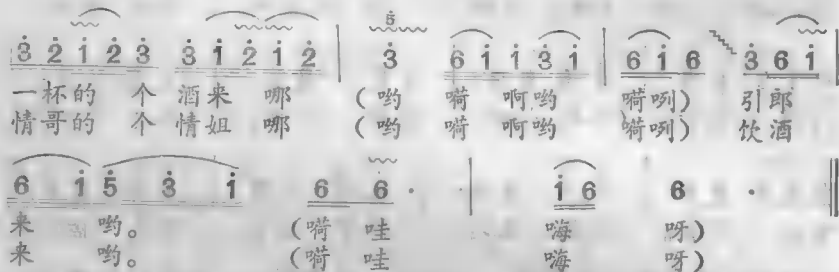 3 2 1 2 3 3 1 2 1 2 | 3 6 1 1 3 1 | 6 1 6 3 6 1 |
一杯的 个 酒来 哪 (哟 嗬 啊哟 嗬咧) 引郎
情哥的 个 情姐 哪 (哟 嗬 啊哟 嗬咧) 饮酒
6 1 5 3 1 6 6 · | 1 6 6 · ‖
来 哟。 (嗬 哇 嗨 呀)
来 哟。 (嗬 哇 嗨 呀)